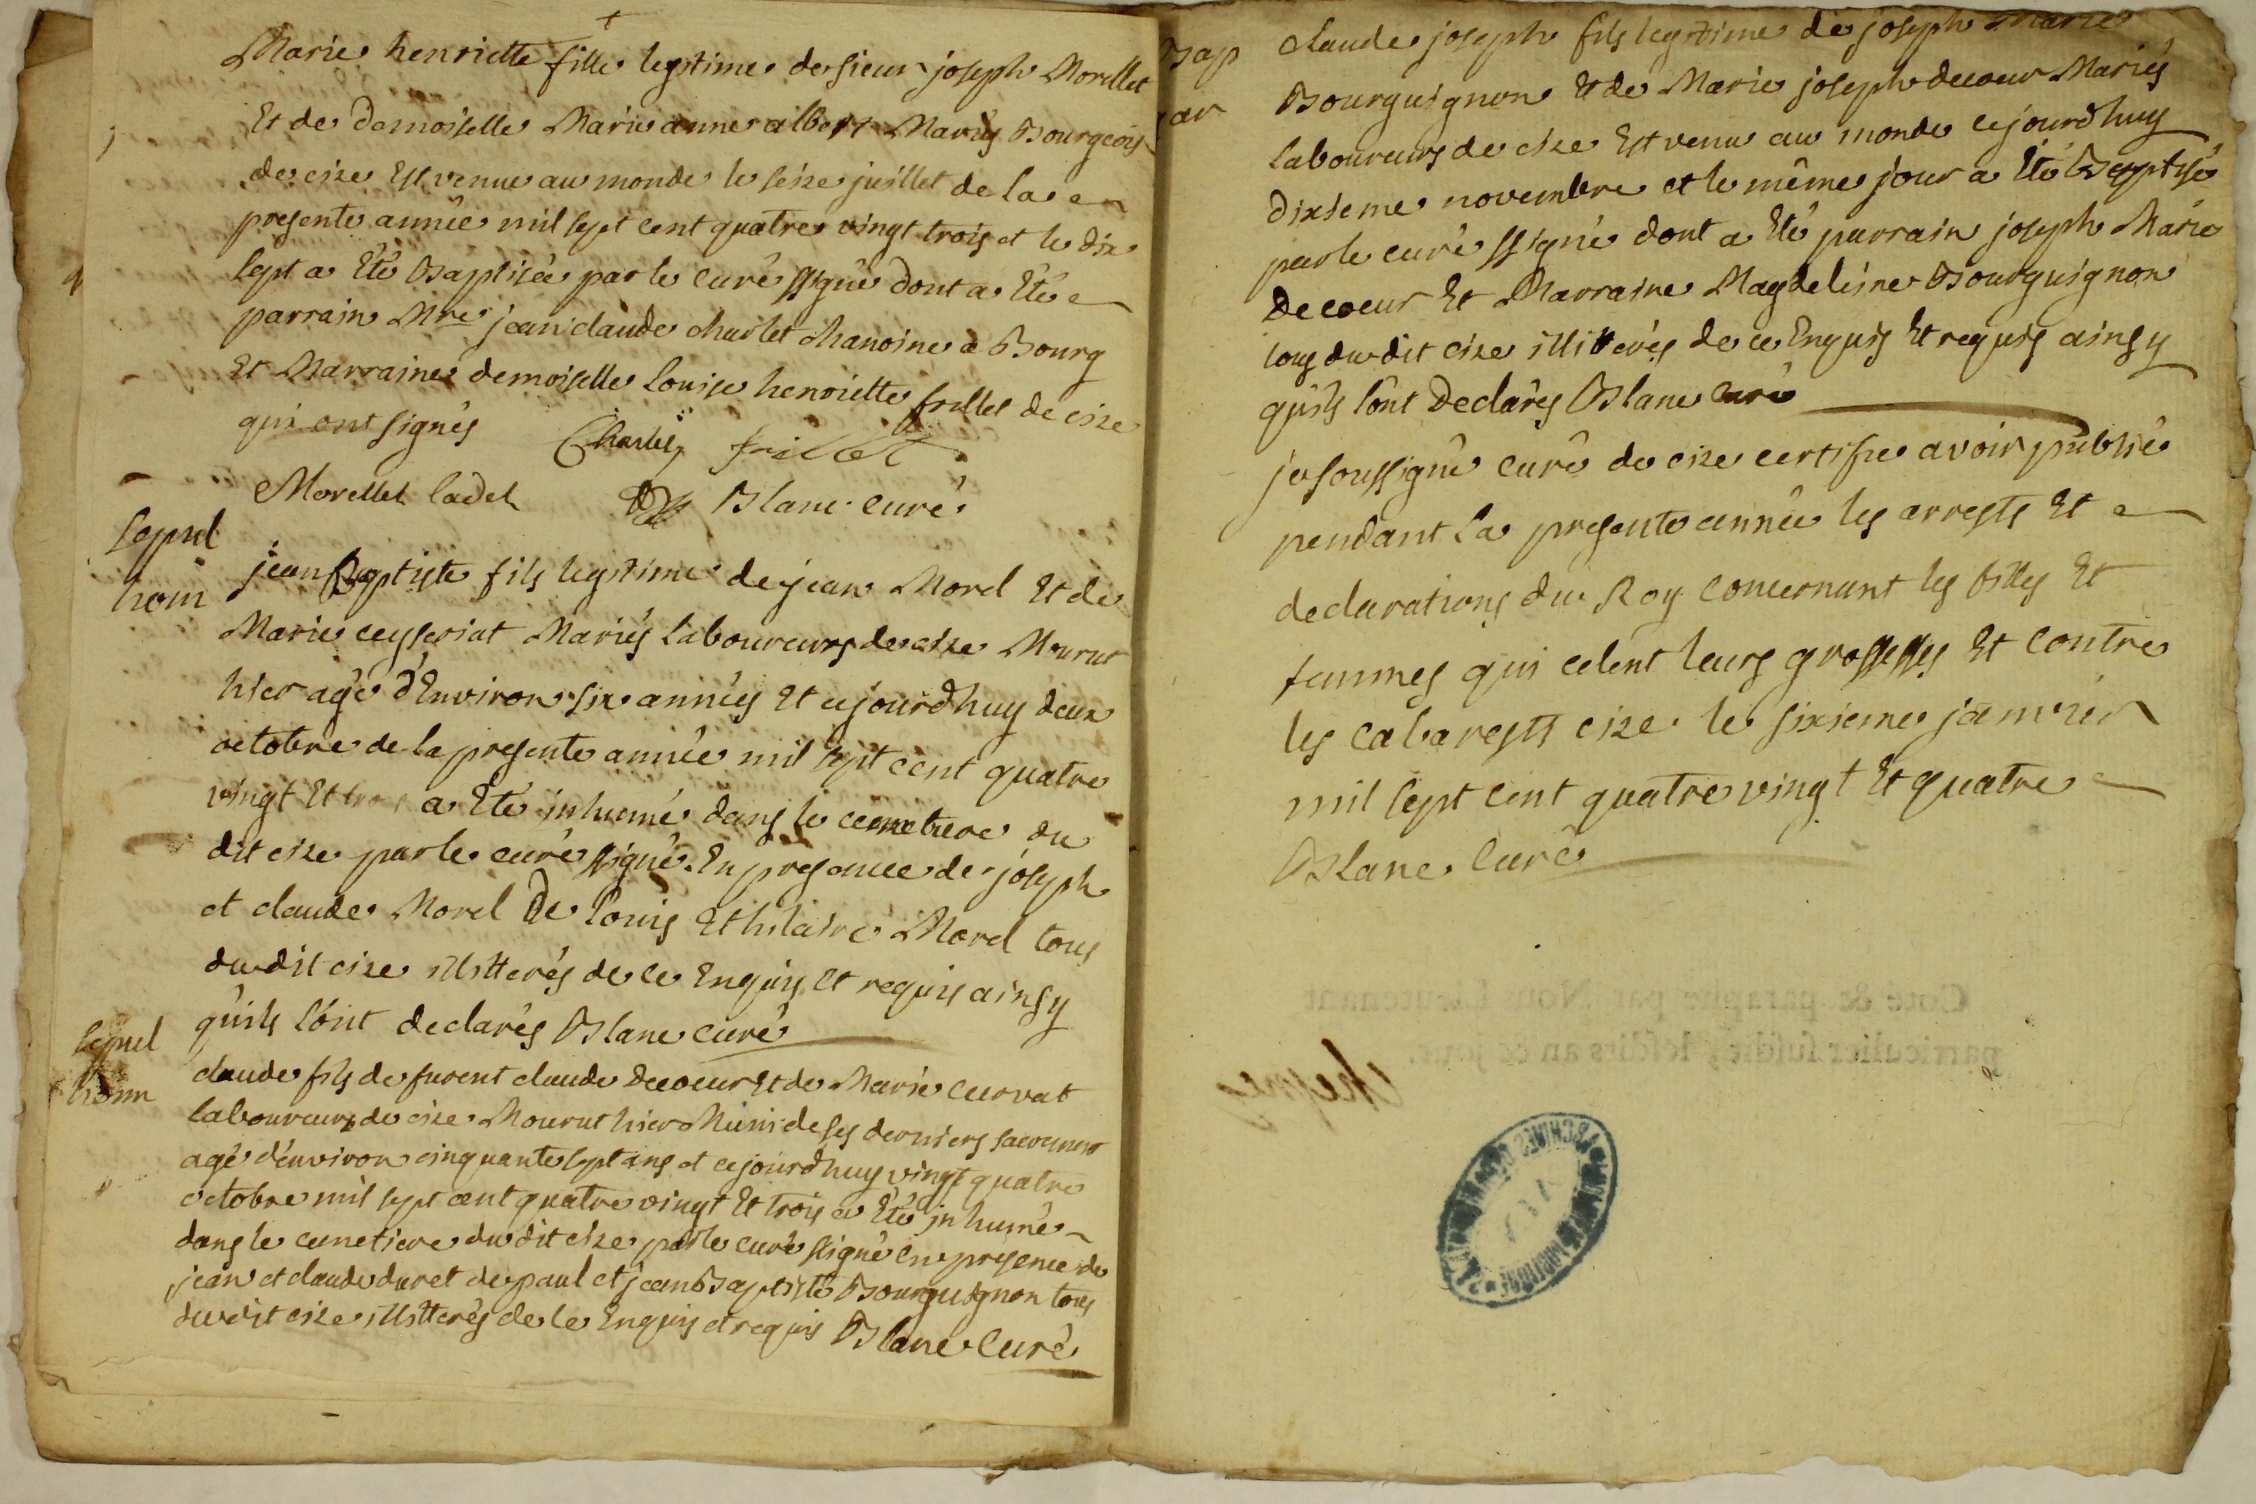 Marie henriette fille legitime de sieur joseph Morellet
Et de Demoiselle Marie anne albert Mariés Bourgeois
de cize Est venue au monde le seize juillet de la
presente année mil sept cent quatre vingt trois et le dix
sept a Eté Baptisée par le curé ssigné dont a Eté
parrain Mre jean claude charlet chanoine a Bourg
Et Marraine demoiselle louise henriette frillet de cize
qui ont signés Charlet frillet
Morellet cadet Blanc curé
sepul
hom
jean Baptiste fils legitime de jean Morel Et de
Marie ceyseriat Mariés laboureurs de cize Mourut
hier agé d'Environ six années Et cejourd'huy deux
octobre de la presente année mil sept cent quatre
vingt Et trois a Eté inhumé dans le cemetiere du
dit cize par le curé ssigné. En presence de joseph
et claude Morel De louis Et hilaire Morel tous
dudit cize illitterés de ce Enquis Et requis ainsy
qu'ils l'ont declarés Blanc curé
sepul
hom
claude fils de furent claude Decoeur Et de Marie curvat
laboureurs de cize Mourut hier Muni de ses derniers sacremens
agé d'environ cinquante sept ans et cejourd'huy vingt quatre
octobre mil sept cent quatre vingt Et trois a Eté inhumé
dans le cemetiere dudit cize par le curé ssigné En presence de
jean et claude duret de paul et jean Baptiste Bourguignon tous
dudit cize illitterés de ce Enquis et requis Blanc Curé
Bap
claude joseph fils legitime de joseph Marie
Bourguignon Et de Marie joseph decoeur Mariés
laboureurs de cize Est venu au monde cejourd'huy
dixieme novembre et le même jour a Eté Baptisé
par le curé ssigné dont a Eté parrain joseph Marie
Decoeur Et Marraine Magdeleine Bourguignon
tous dudit cize illitterés de ce Enquis Et requis ainsy
qu'ils l'ont Declarés Blanc curé
je soussigné curé de cize certifie avoir publié
pendant la presente année les arrests Et
declarations du Roy concernant les filles Et
femmes qui celent leurs grossesses Et contre
les cabarests cize le sixieme janvier
mil sept cent quatre vingt Et quatre
Blanc Curé
Coté & paraphé par Nous Lieutenant
particulier susdit, lesdits an & jour.